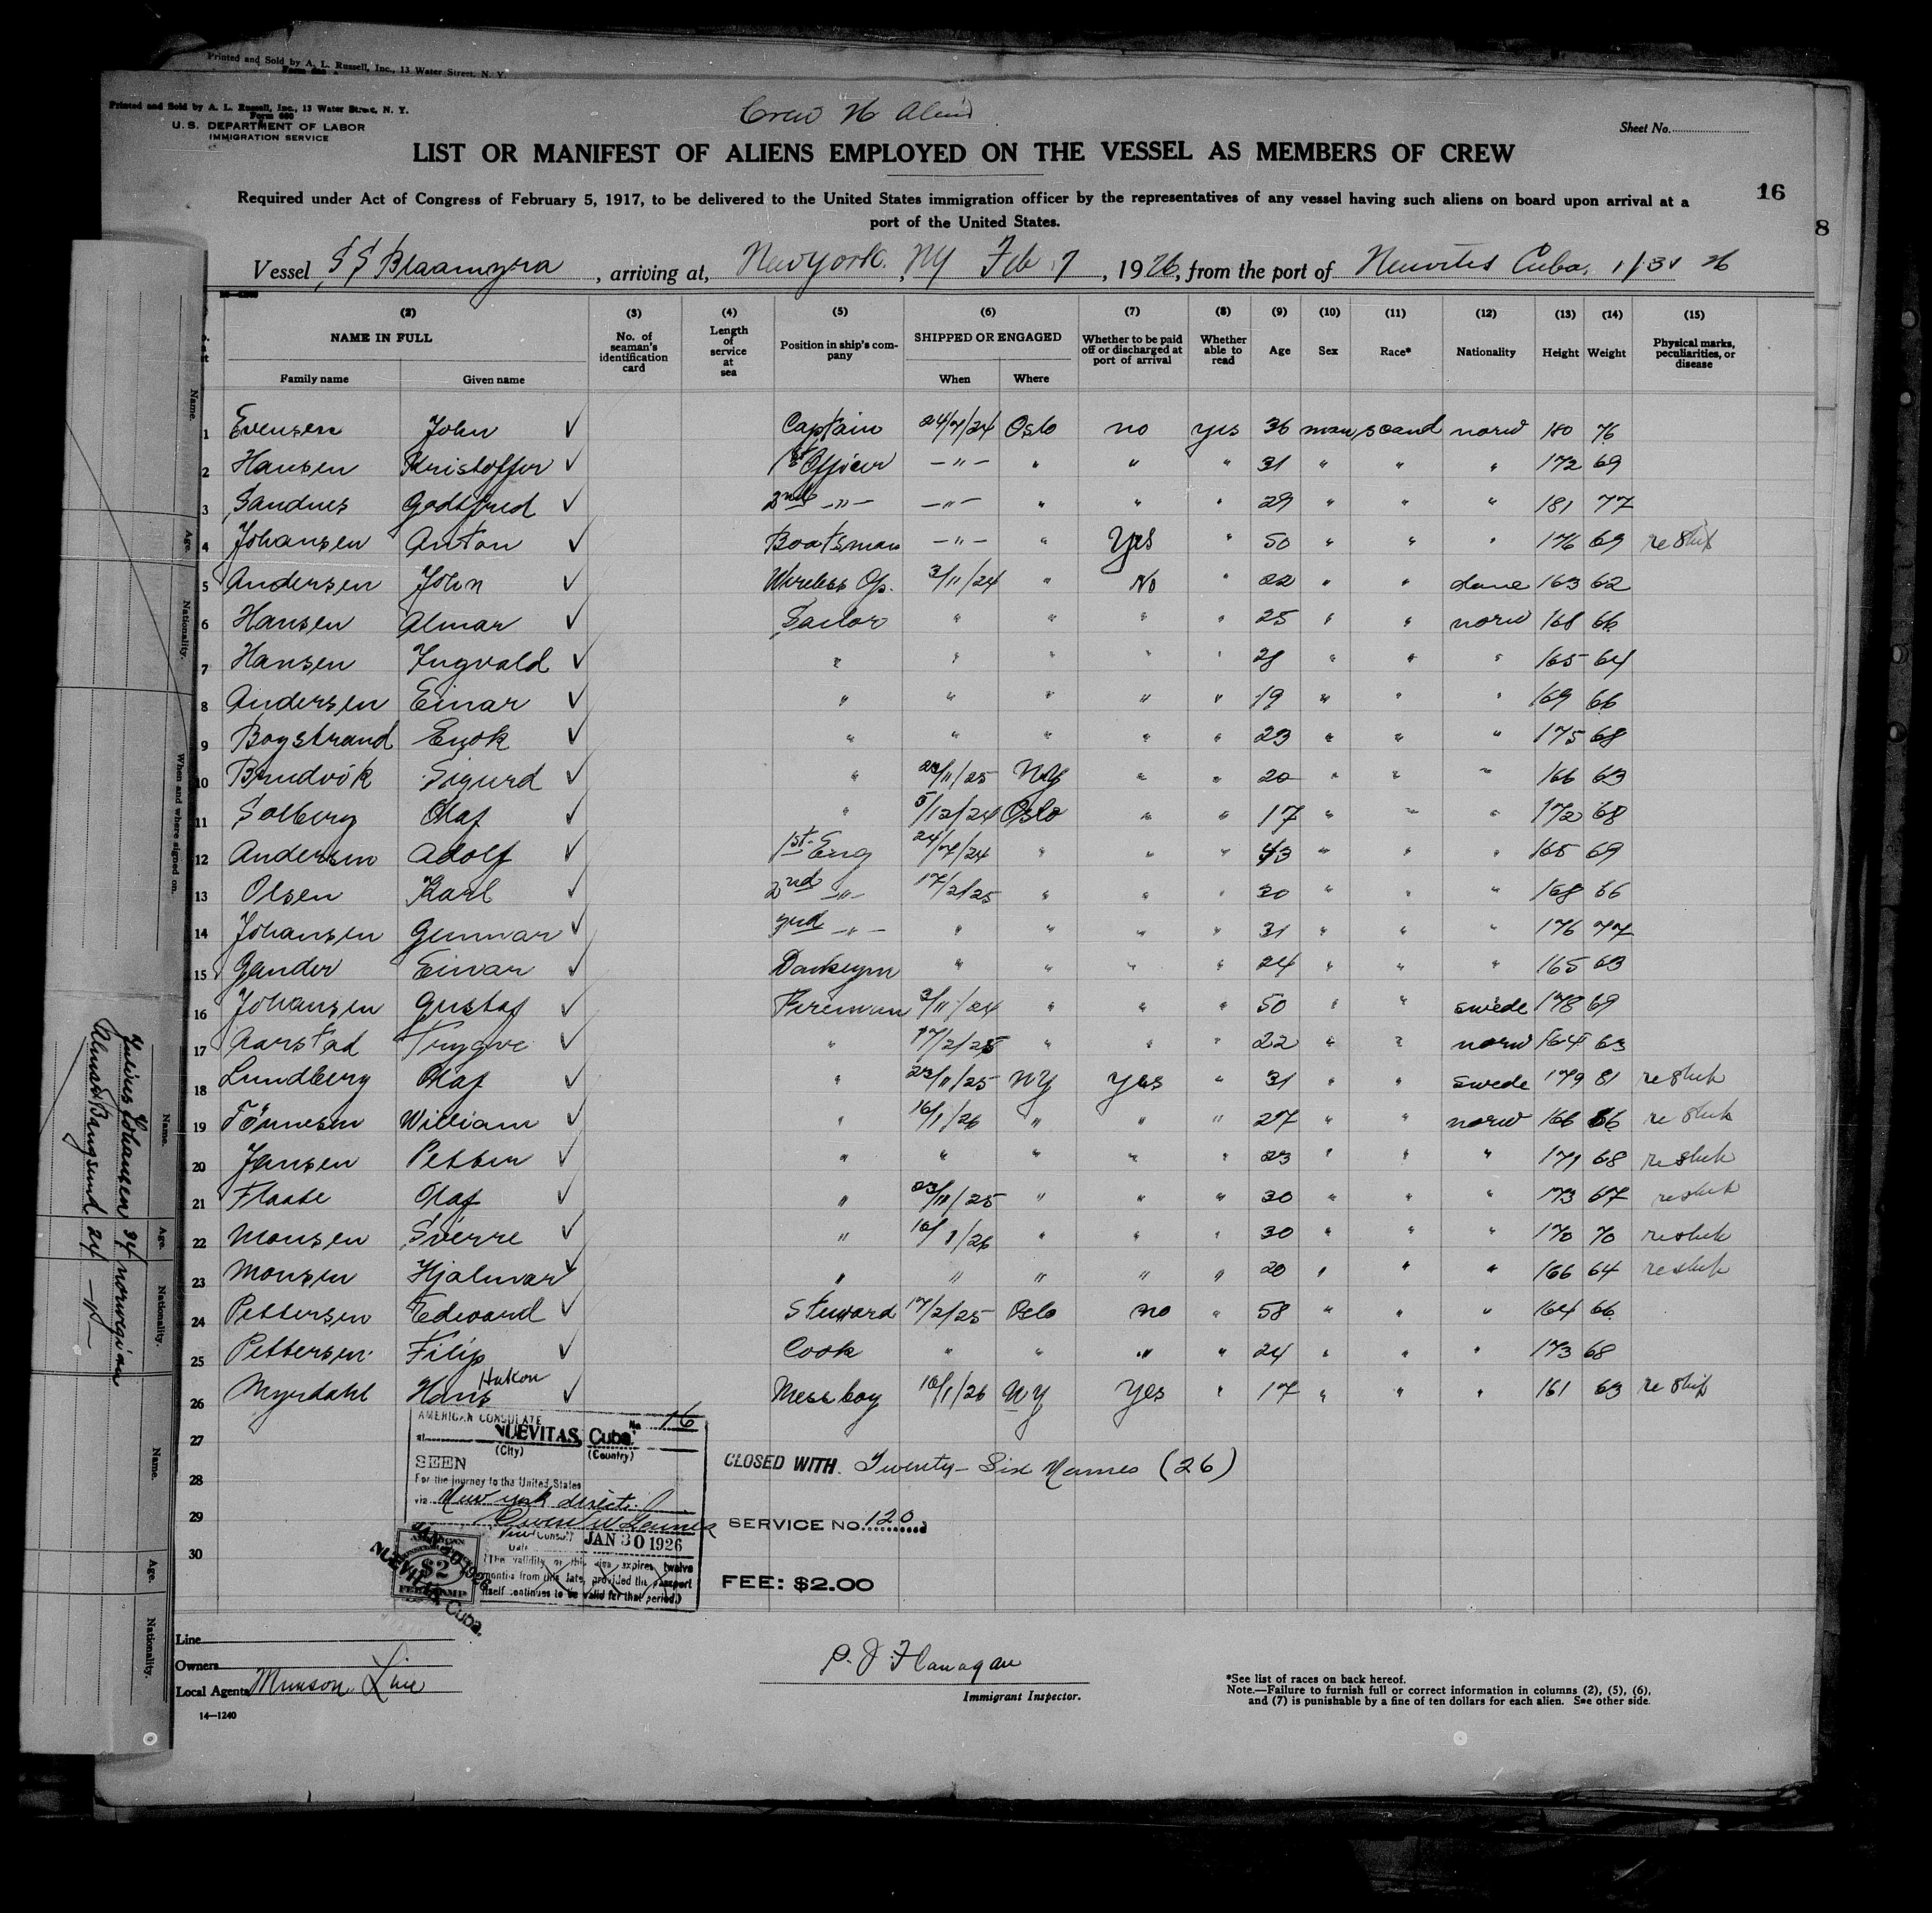 Printed and Sold by A. L. Russell, Inc., 13 Water Street, N. Y.
Printed and Sold by A. L. Russell, Inc., 13 Water Street, N. Y.
Form 680
U. S. DEPARTMENT OF LABOR
IMMIGRATION SERVICE
Crew 26
Sheet No.
LIST OR MANIFEST OF ALIENS EMPLOYED ON THE VESSEL AS MEMBERS OF CREW
16
Required under Act of Congress of February 5, 1917, to be delivered to the United States immigration officer by the representatives of any vessel having such aliens on board upon arrival at a
port of the United States.
8
Vessel SS Blaamyra, arriving at, New york, NY Feb 7, 1926, from the port of Neuvites Cuba, 1/31 26
(2) (3) (4) (5) (6) (7) (8) (9) (10) (11) (12) (13) (14) (15)
NAME IN FULL
Family name Given name
No. of seaman's identification card
Length of service at sea
Position in ship's company
SHIPPED OR ENGAGED
When Where
Whether to be paid off or discharged at port of arrival
Whether able to read
Age Sex Race* Nationality Height Weight
Physical marks, peculiarities, or disease
1 Evensen John ✓ Captain 24/7/24 Oslo no yes 36 man scand norw 180 76
2 Hansen Kristoffer ✓ 1st Officer —"— " " " 31 " " " 172 69
3 Sandnes Godtfred ✓ 2nd —"— —"— " " " 29 " " " 181 77
4 Johansen Anton ✓ Boatsman —"— " Yes " 50 " " " 176 69 reship
5 Andersen John ✓ Wireless Op. 3/11/24 " No " 22 " " dane 163 62
6 Hansen Almar ✓ Sailor " " " " 25 " " norw 168 66
7 Hansen Ingvald ✓ " " " " " 28 " " " 165 64
8 Andersen Einar ✓ " " " " " 19 " " " 169 66
9 Bogstrand Enok ✓ " " " " " 23 " " " 175 68
10 Brudvik Sigurd ✓ " 23/11/25 NY " " 20 " " " 166 63
11 Solberg Olaf ✓ " 5/12/24 Oslo " " 17 " " " 172 68
12 Andersen Adolf ✓ 1st Eng 24/7/24 " " " 43 " " " 165 69
13 Olsen Karl ✓ 2nd —"— 17/2/25 " " " 30 " " " 168 66
14 Johansen Gunnar ✓ 3rd —"— " " " " 31 " " " 176 77
15 Gander Einar ✓ Donkeym " " " " 24 " " " 165 63
16 Johansen Gustaf ✓ Fireman 3/11/24 " " " 50 " " swede 178 69
17 Aarstad Trygve ✓ " 17/2/25 " " " 22 " " norw 164 63
18 Lundberg Olaf ✓ " 23/11/25 NY yes " 31 " " swede 179 81 reship
19 Tönnesen William ✓ " 16/1/26 " " " 27 " " norw 166 66 reship
20 Jensen Petter ✓ " " " " " 23 " " " 171 68 reship
21 Flaate Olaf ✓ " 23/11/25 " " " 30 " " " 173 67 reship
22 Monsen Sverre ✓ " 16/1/26 " " " 30 " " " 170 70 reship
23 Monsen Hjalmar ✓ " " " " " 20 " " " 166 64 reship
24 Pettersen Edward ✓ Steward 17/2/25 Oslo no " 58 " " " 164 66
25 Pettersen Filip ✓ Cook " " " " 24 " " " 173 68
26 Myrdahl Hans Hakon ✓ Messboy 16/1/26 NY Yes " 17 " " " 161 63 reship
27
28
29
30
AMERICAN CONSULATE No 16
at NUEVITAS, Cuba.
(City) (Country)
SEEN
For the journey to the United States
via New york direct.
Vice Consul
Date JAN 30 1926
(The validity of this visa expires twelve
months from this date, provided the passport
itself continues to be valid for that period.)
$2
FEE STAMP
JAN 30 1926
NUEVITAS, Cuba.
CLOSED WITH Twenty-Six Names (26)
SERVICE NO. 120
FEE: $2.00
Line
Owners
Local Agents Munson Line
14—1240
P. J. Flanagan
Immigrant Inspector.
*See list of races on back hereof.
Note.—Failure to furnish full or correct information in columns (2), (5), (6),
and (7) is punishable by a fine of ten dollars for each alien. See other side.
Name. Age. Nationality. When and where signed on.
Name. Age. Nationality.
Julius Johansen 34 norwegian
Almar Bangsund 24 —"—
Name. Age. Nationality.